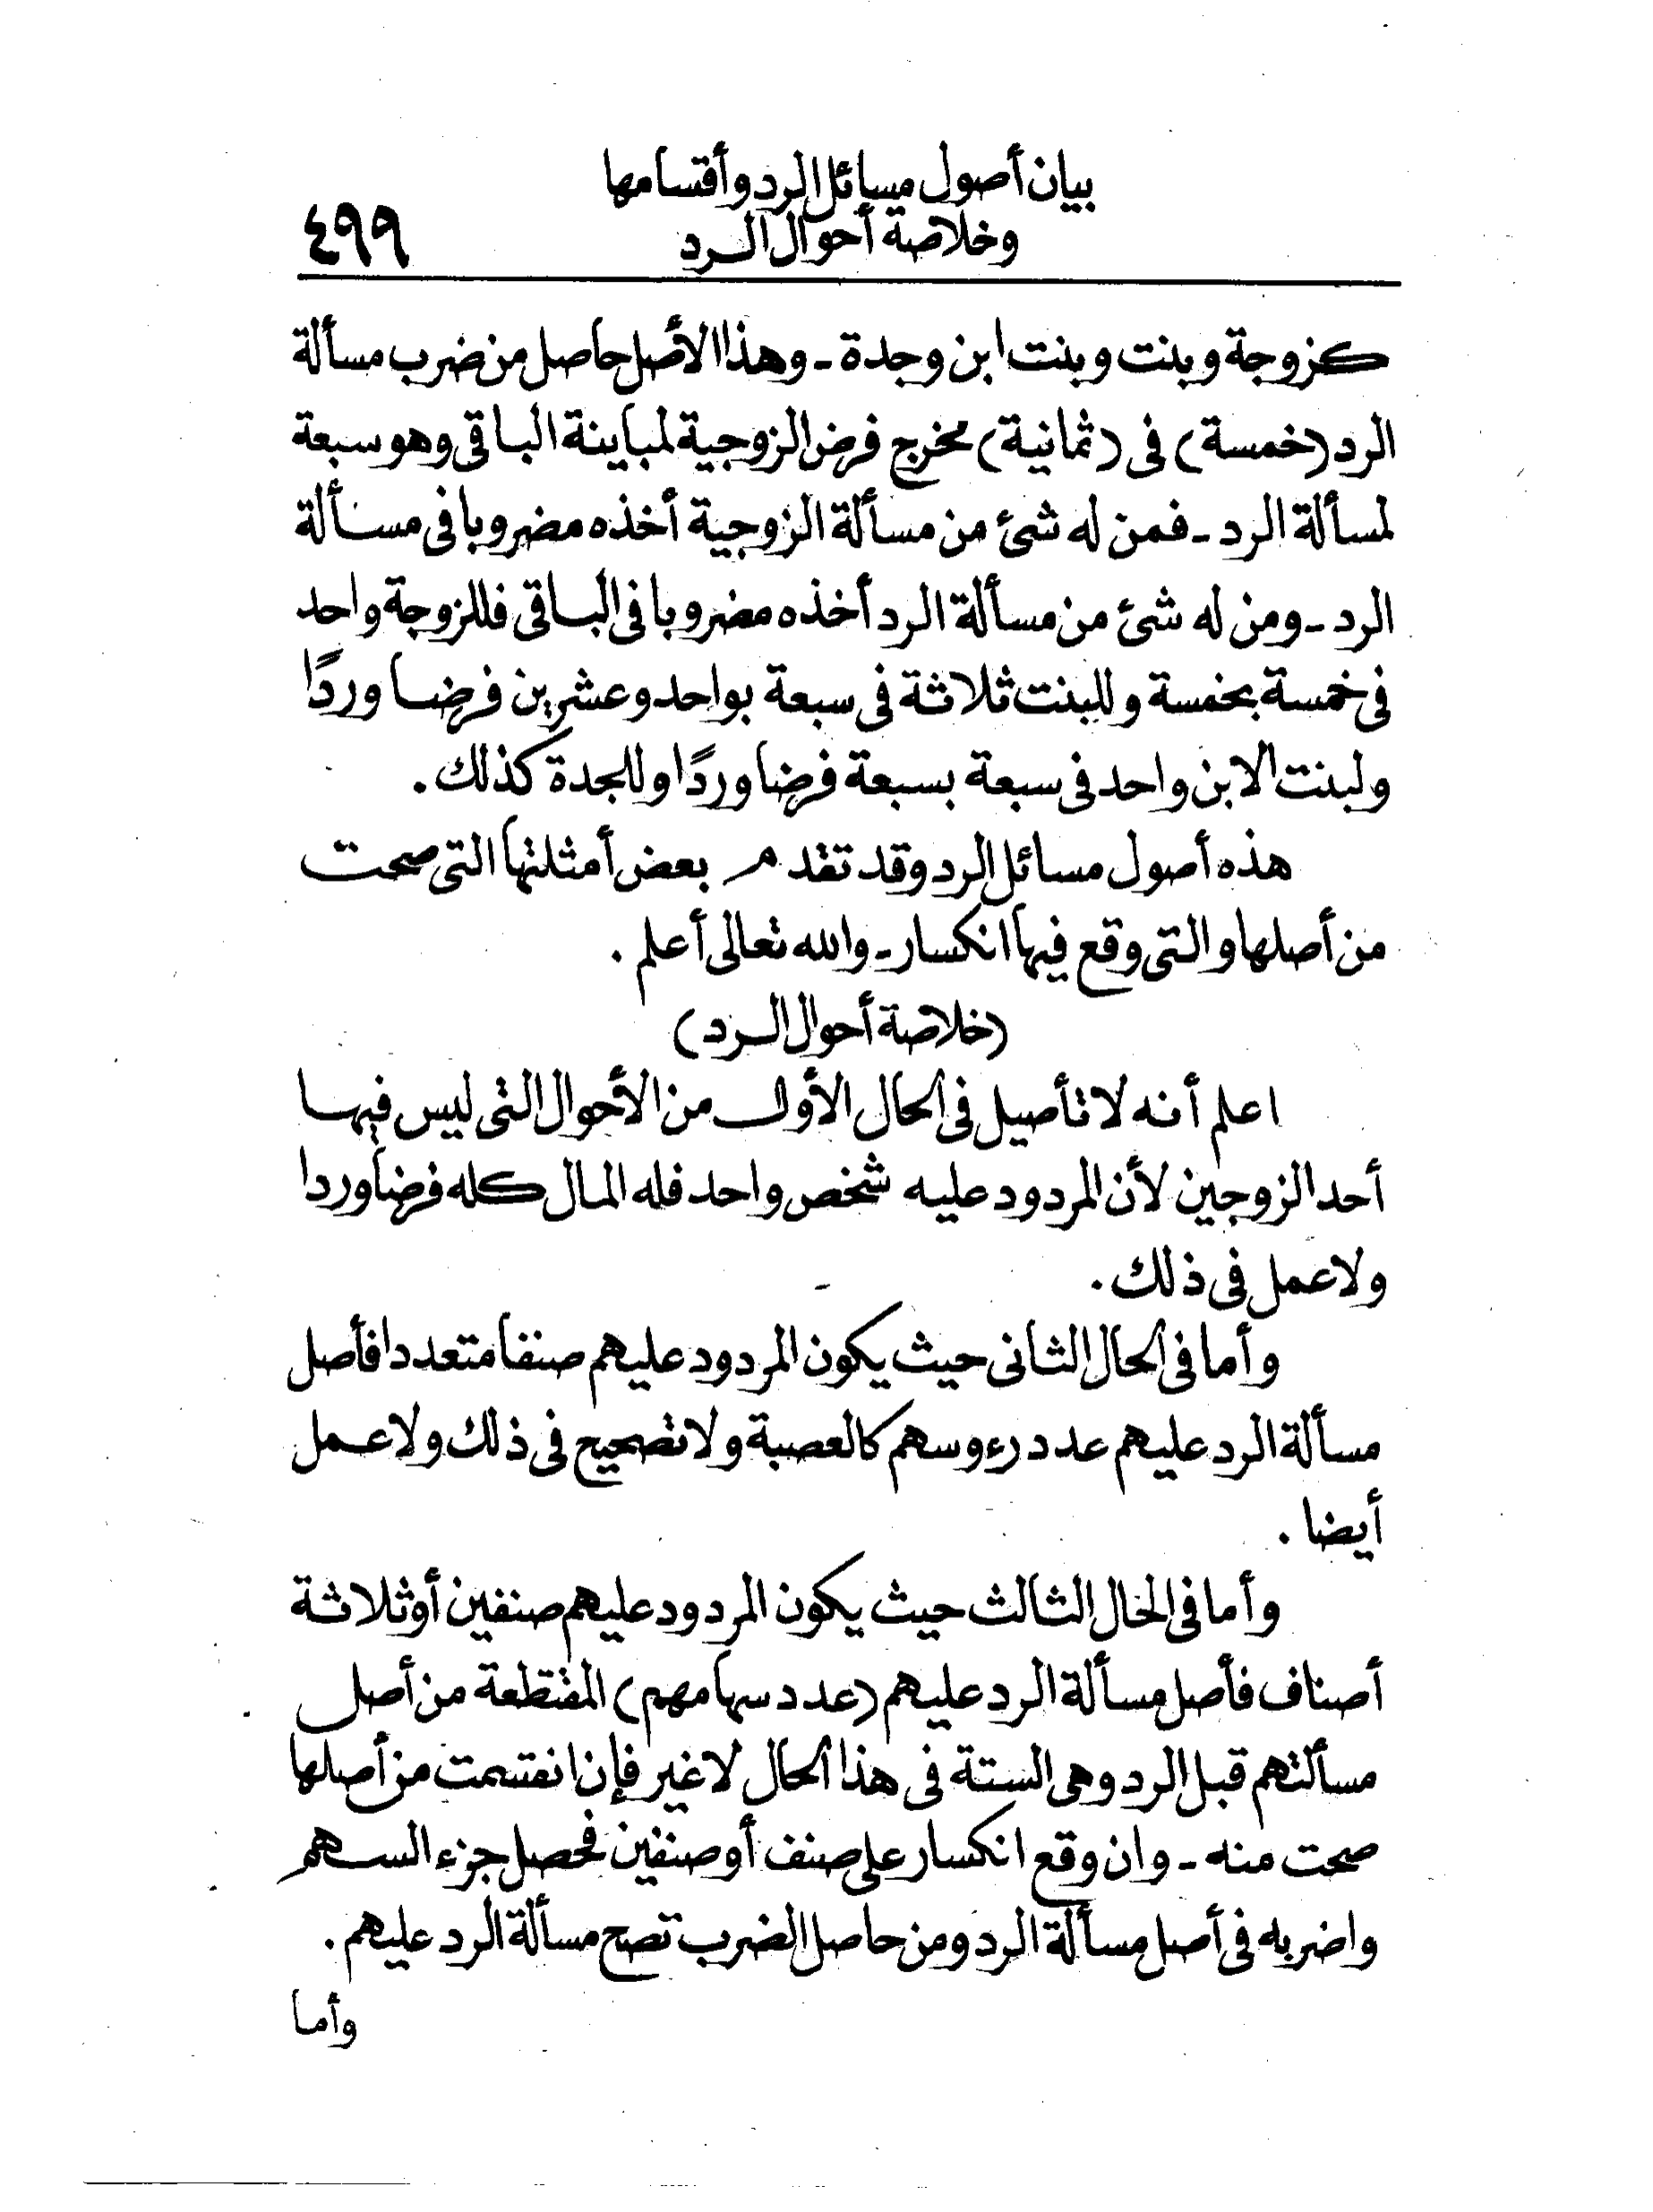 بيان أصول مسائل الرد وأقسامها
وخلاصة أحوال الرد
٤٩٩
كزوجة وبنت وبنت ابن وجدة - وهذا الأصل حاصل من ضرب مسألة
الرد (خمسة) فى (ثمانية) مخرج فرض الزوجية لمباينة الباقى وهو سبعة
لمسألة الرد - فمن له شئ من مسألة الزوجية أخذه مضروبا فى مسألة
الرد - ومن له شئ من مسألة الرد أخذه مضروبا فى الباقى فللزوجة واحد
فى خمسة بخمسة وللبنت ثلاثة فى سبعة بواحد وعشرين فرضا وردًا
ولبنت الابن واحد فى سبعة بسبعة فرضا وردًا وللجدة كذلك .
هذه أصول مسائل الرد وقد تقدم بعض أمثلتها التى صحت
من أصلها والتى وقع فيها انكسار - والله تعالى أعلم .
(خلاصة أحوال الرد)
اعلم أنه لا تأصيل فى الحال الأول من الأحوال التى ليس فيها
أحد الزوجين لأن المردود عليه شخص واحد فله المال كله فرضا وردا
ولا عمل فى ذلك .
وأما فى الحال الثانى حيث يكون المردود عليهم صنفا متعددا فأصل
مسألة الرد عليهم عدد رءوسهم كالعصبة ولا تصحيح فى ذلك ولا عمل
أيضا .
وأما فى الحال الثالث حيث يكون المردود عليهم صنفين أو ثلاثة
أصناف فأصل مسألة الرد عليهم (عدد سهامهم) المقتطعة من أصل
مسألتهم قبل الرد وهى الستة فى هذا الحال لا غير فإن انقسمت من أصلها
صحت منه - وان وقع انكسار على صنف أو صنفين فحصل جزء السهم
واضربه فى أصل مسألة الرد ومن حاصل الضرب تصح مسألة الرد عليهم .
وأما